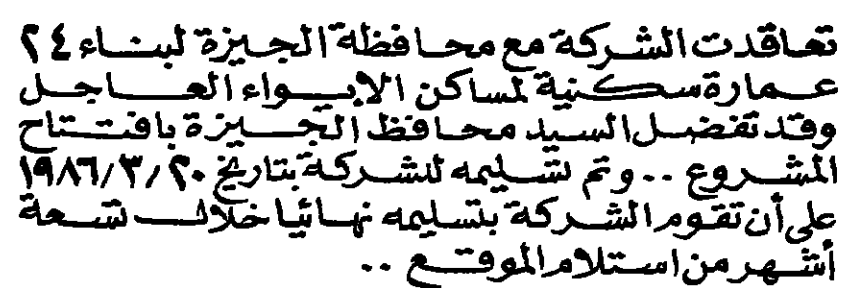 تعاقدت الشركة مع محافظة الجيزة لبناء ٢٤
عمارة سكنية لمساكن الايواء العاجل
وقد تفضل السيد محافظ الجيزة بافتتاح
المشروع .. وتم تسليمه للشركة بتاريخ ١٩٨٦/٣/٢٠
على أن تقوم الشركة بتسليمه نهائيا خلال تسعة
أشهر من استلام الموقع ..